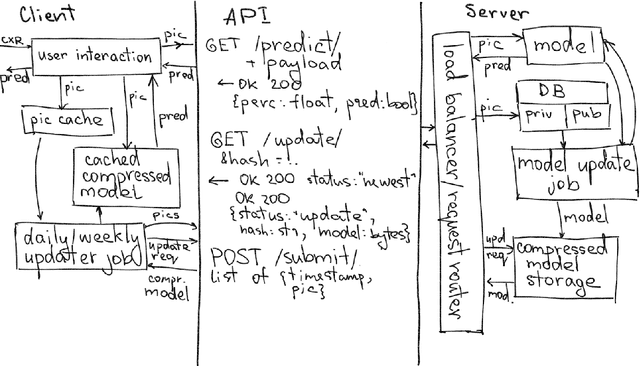 Client
CXR
user interaction
pic
pred
pred
pic
pic
pred
pic cache
cached
compressed
model
pics
daily/weekly
updater job
update
req
compr.
model
API
GET /predict/
+ payload
← OK 200
{perc: float, pred: bool}
GET /update/
&hash = ...
← OK 200 status: "newest"
OK 200
{status: "update",
hash: str, model: bytes}
POST /submit/
list of {timestamp,
pic}
Server
load balancer/request router
pic
pred
model
DB
priv
pub
pic
model update
job
model
upd
req
mod.
compressed
model
storage